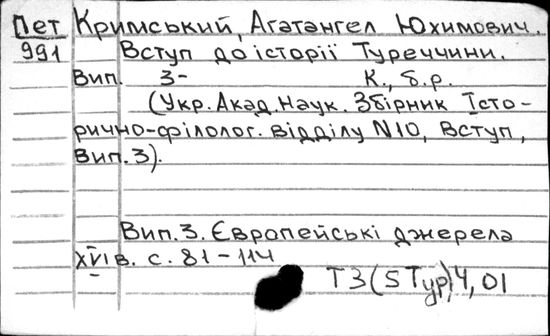 Пет Кримський, Агатангел Юхимович.
991 Вступ до історії Туреччини.
Вип. 3- К., б.р.
(Укр. Акад. Наук. Збірник Істо-
рично-філолог. відділу N10, Вступ,
Вип. 3).
Вип. 3. Європейські джерела
XVI в. с. 81-114
Т3(5Тур)4,01